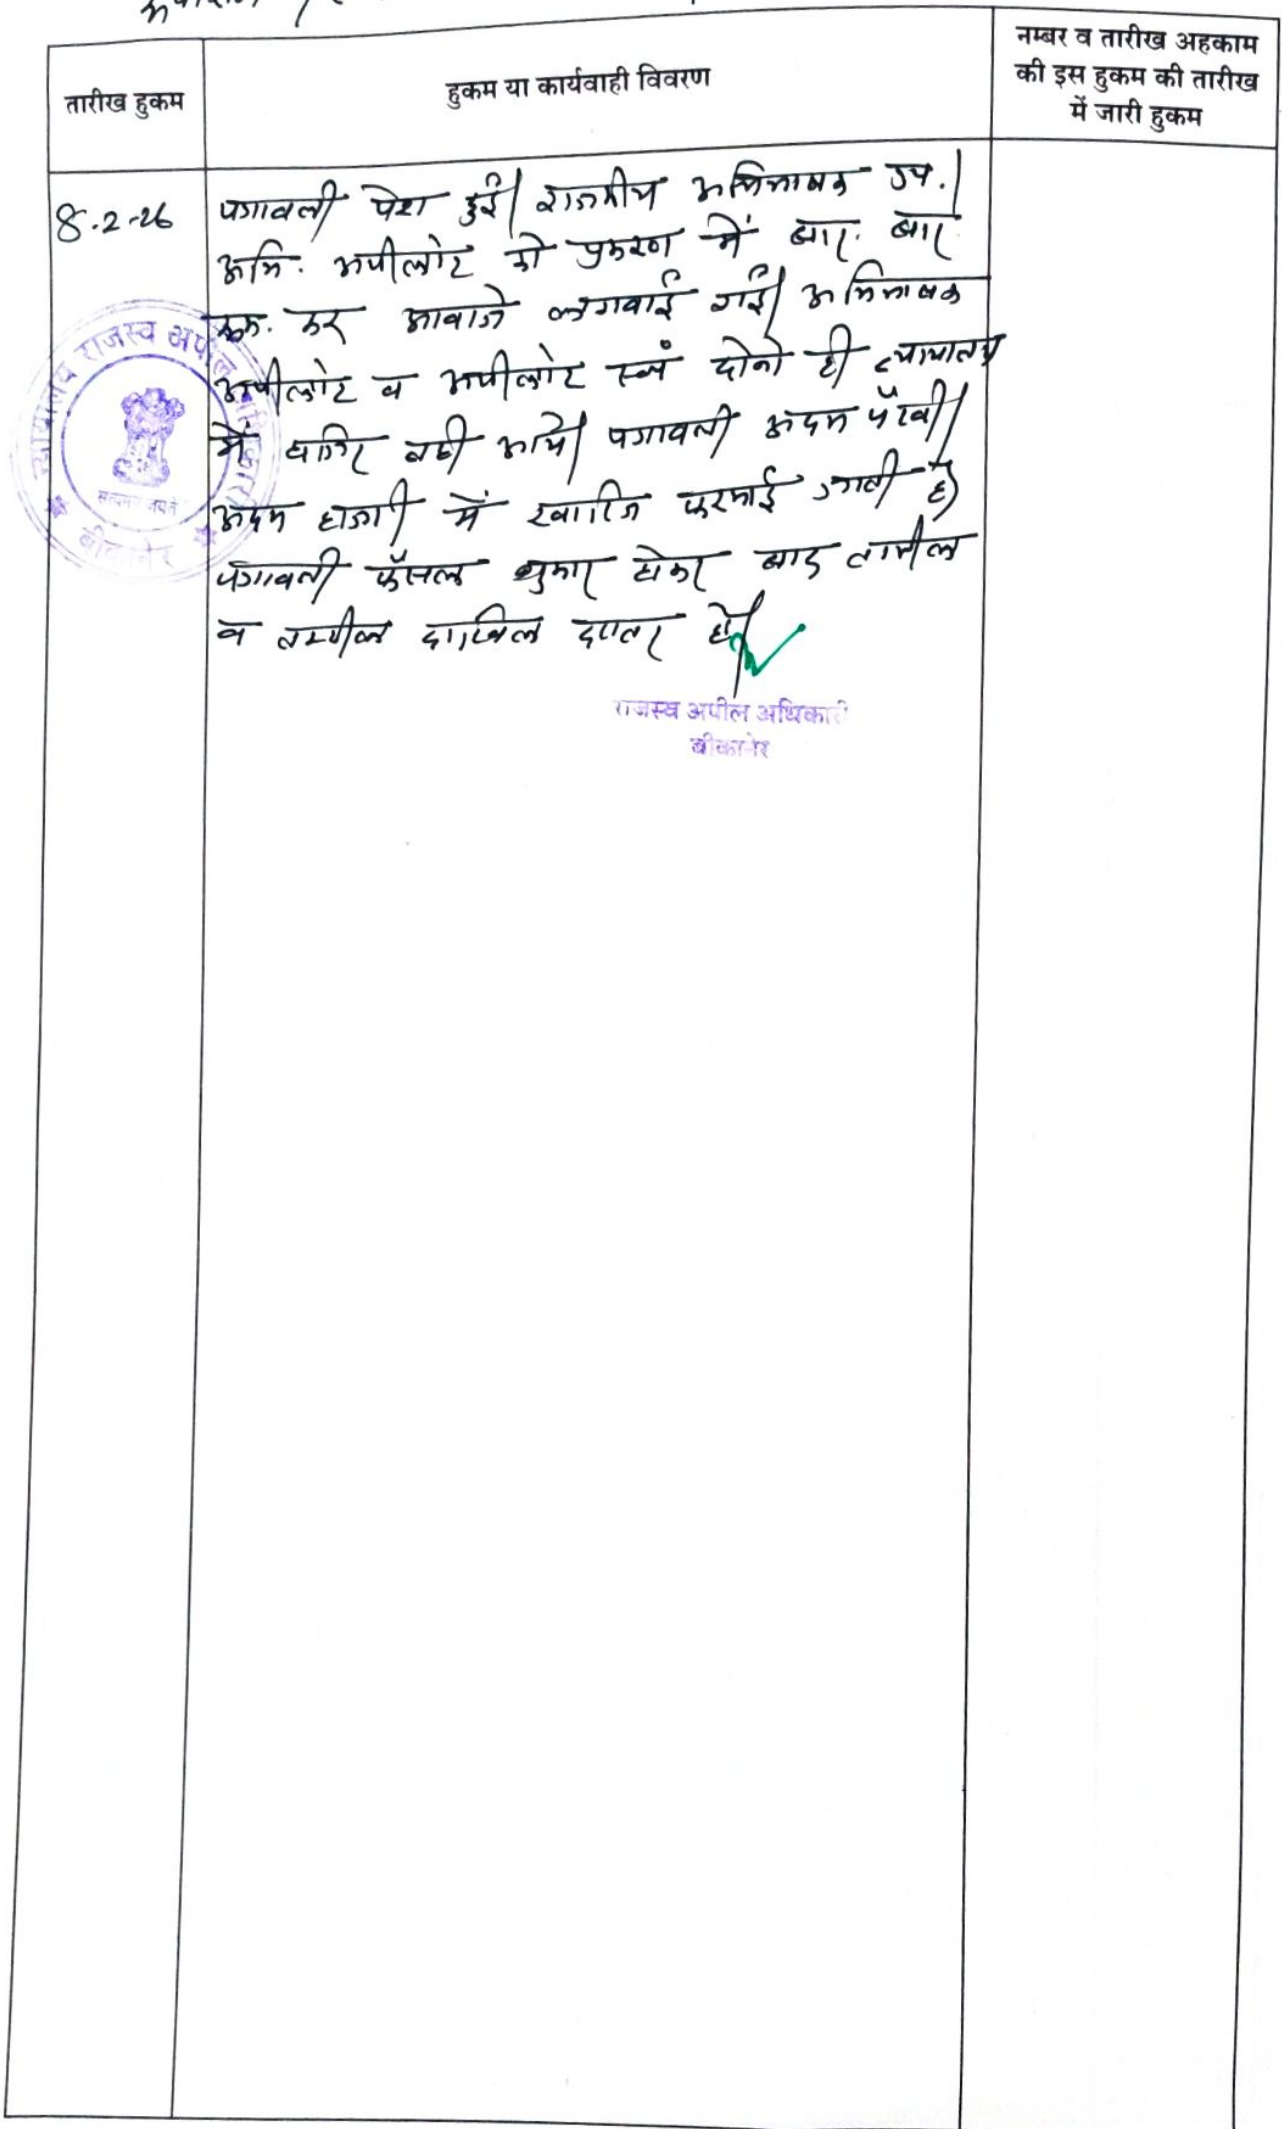 तारीख हुकम
हुकम या कार्यवाही विवरण
नम्बर व तारीख अहकाम
की इस हुकम की तारीख
में जारी हुकम
8.2-26
पत्रावली पेश हुई। राजकीय अभिभाषक उप.।
अभि. अपीलांट को प्रकरण में बार. बार
कर आवाजे लगवाई गई। अभिभाषक
अपीलांट व अपीलांट स्वयं दोनो ही न्यायालय
में हाजिर नही आये। पत्रावली अदम पैरवी/
अदम हाजरी में खारिज फरमाई जाती है।
पत्रावली फैसल शुमार होकर बाद तामील
व तकमील दाखिल दफ्तर हो।
राजस्व अपील अधिकारी
बीकानेर
न्यायालय राजस्व अपील अधिकारी
सत्यमेव जयते
बीकानेर